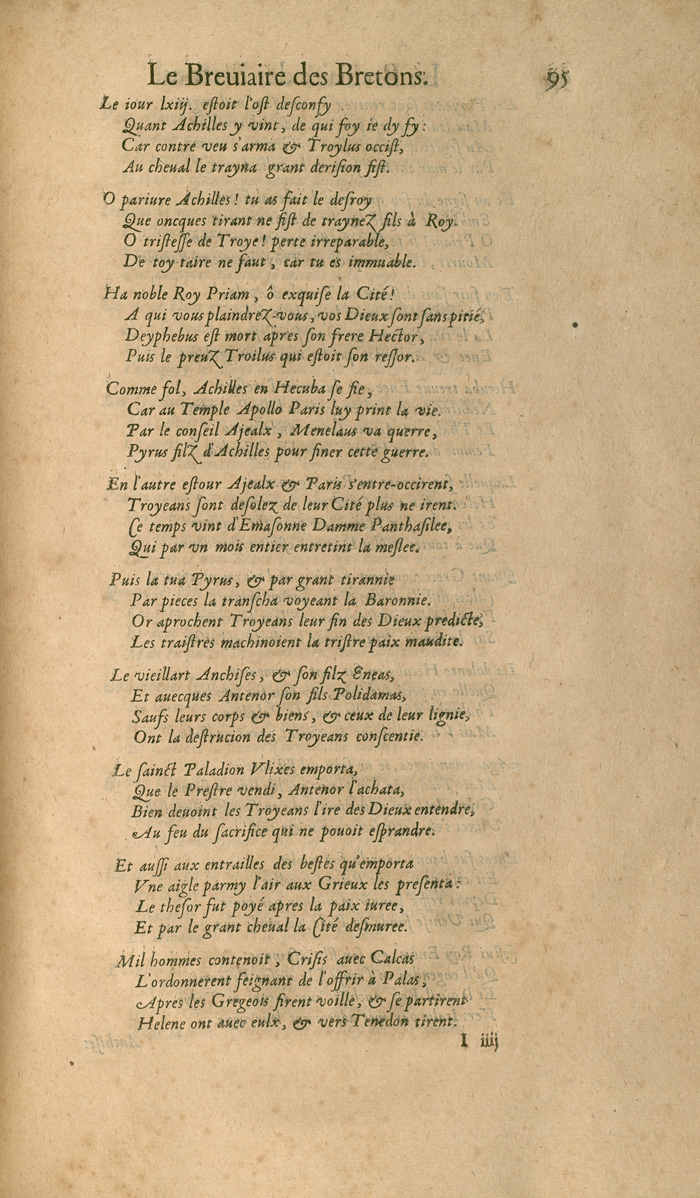 Le Breuiaire des Bretons. 95
Le iour lxiij. eſtoit l'oſt deſconfy
Quant Achilles y vint, de qui foy ie dy fy:
Car contre veu s'arma & Troylus occiſt,
Au cheual le trayna grant deriſion fiſt.
O pariure Achilles! tu as fait le deſroy
Que oncques tirant ne fiſt de traynez fils à Roy.
O triſteſſe de Troye! perte irreparable,
De toy taire ne faut, car tu es immuable.
Ha noble Roy Priam, ô exquiſe la Cité!
A qui vous plaindrez-vous, vos Dieux ſont ſans pitié,
Deyphebus eſt mort apres ſon frere Hector,
Puis le preuz Troilus qui eſtoit ſon reſſor.
Comme fol, Achilles en Hecuba ſe fie,
Car au Temple Apollo Paris luy print la vie.
Par le conſeil Ajealx, Menelaus va querre,
Pyrus filz d'Achilles pour finer cette guerre.
En l'autre eſtour Ajealx & Paris s'entre-occirent,
Troyeans ſont deſolez de leur Cité plus ne irent.
Ce temps vint d'Emaſonne Damme Panthaſilee,
Qui par vn mois entier entretint la meſlee.
Puis la tua Pyrus, & par grant tirannie
Par pieces la tranſcha voyeant la Baronnie.
Or aprochent Troyeans leur fin des Dieux predicte,
Les traiſtres machinoient la triſtre paix maudite.
Le vieillart Anchiſes, & ſon filz Eneas,
Et auecques Antenor ſon fils Polidamas,
Saufs leurs corps & biens, & ceux de leur lignie,
Ont la deſtrucion des Troyeans conſcentie.
Le ſainct Paladion Vlixes emporta,
Que le Preſtre vendi, Antenor l'achata,
Bien deuoint les Troyeans l'ire des Dieux entendre,
Au feu du ſacrifice qui ne pouoit eſprandre.
Et auſſi aux entrailles des beſtes qu'emporta
Vne aigle parmy l'air aux Grieux les preſenta:
Le theſor fut poyé apres la paix iuree,
Et par le grant cheual la Cité deſmuree.
Mil hommes contenoit, Criſis auec Calcas
L'ordonnerent feignant de l'offrir à Palas,
Apres les Gregeois firent voille, & ſe partirent
Helene ont auec eulx, & vers Tenedon tirent.
I iiij